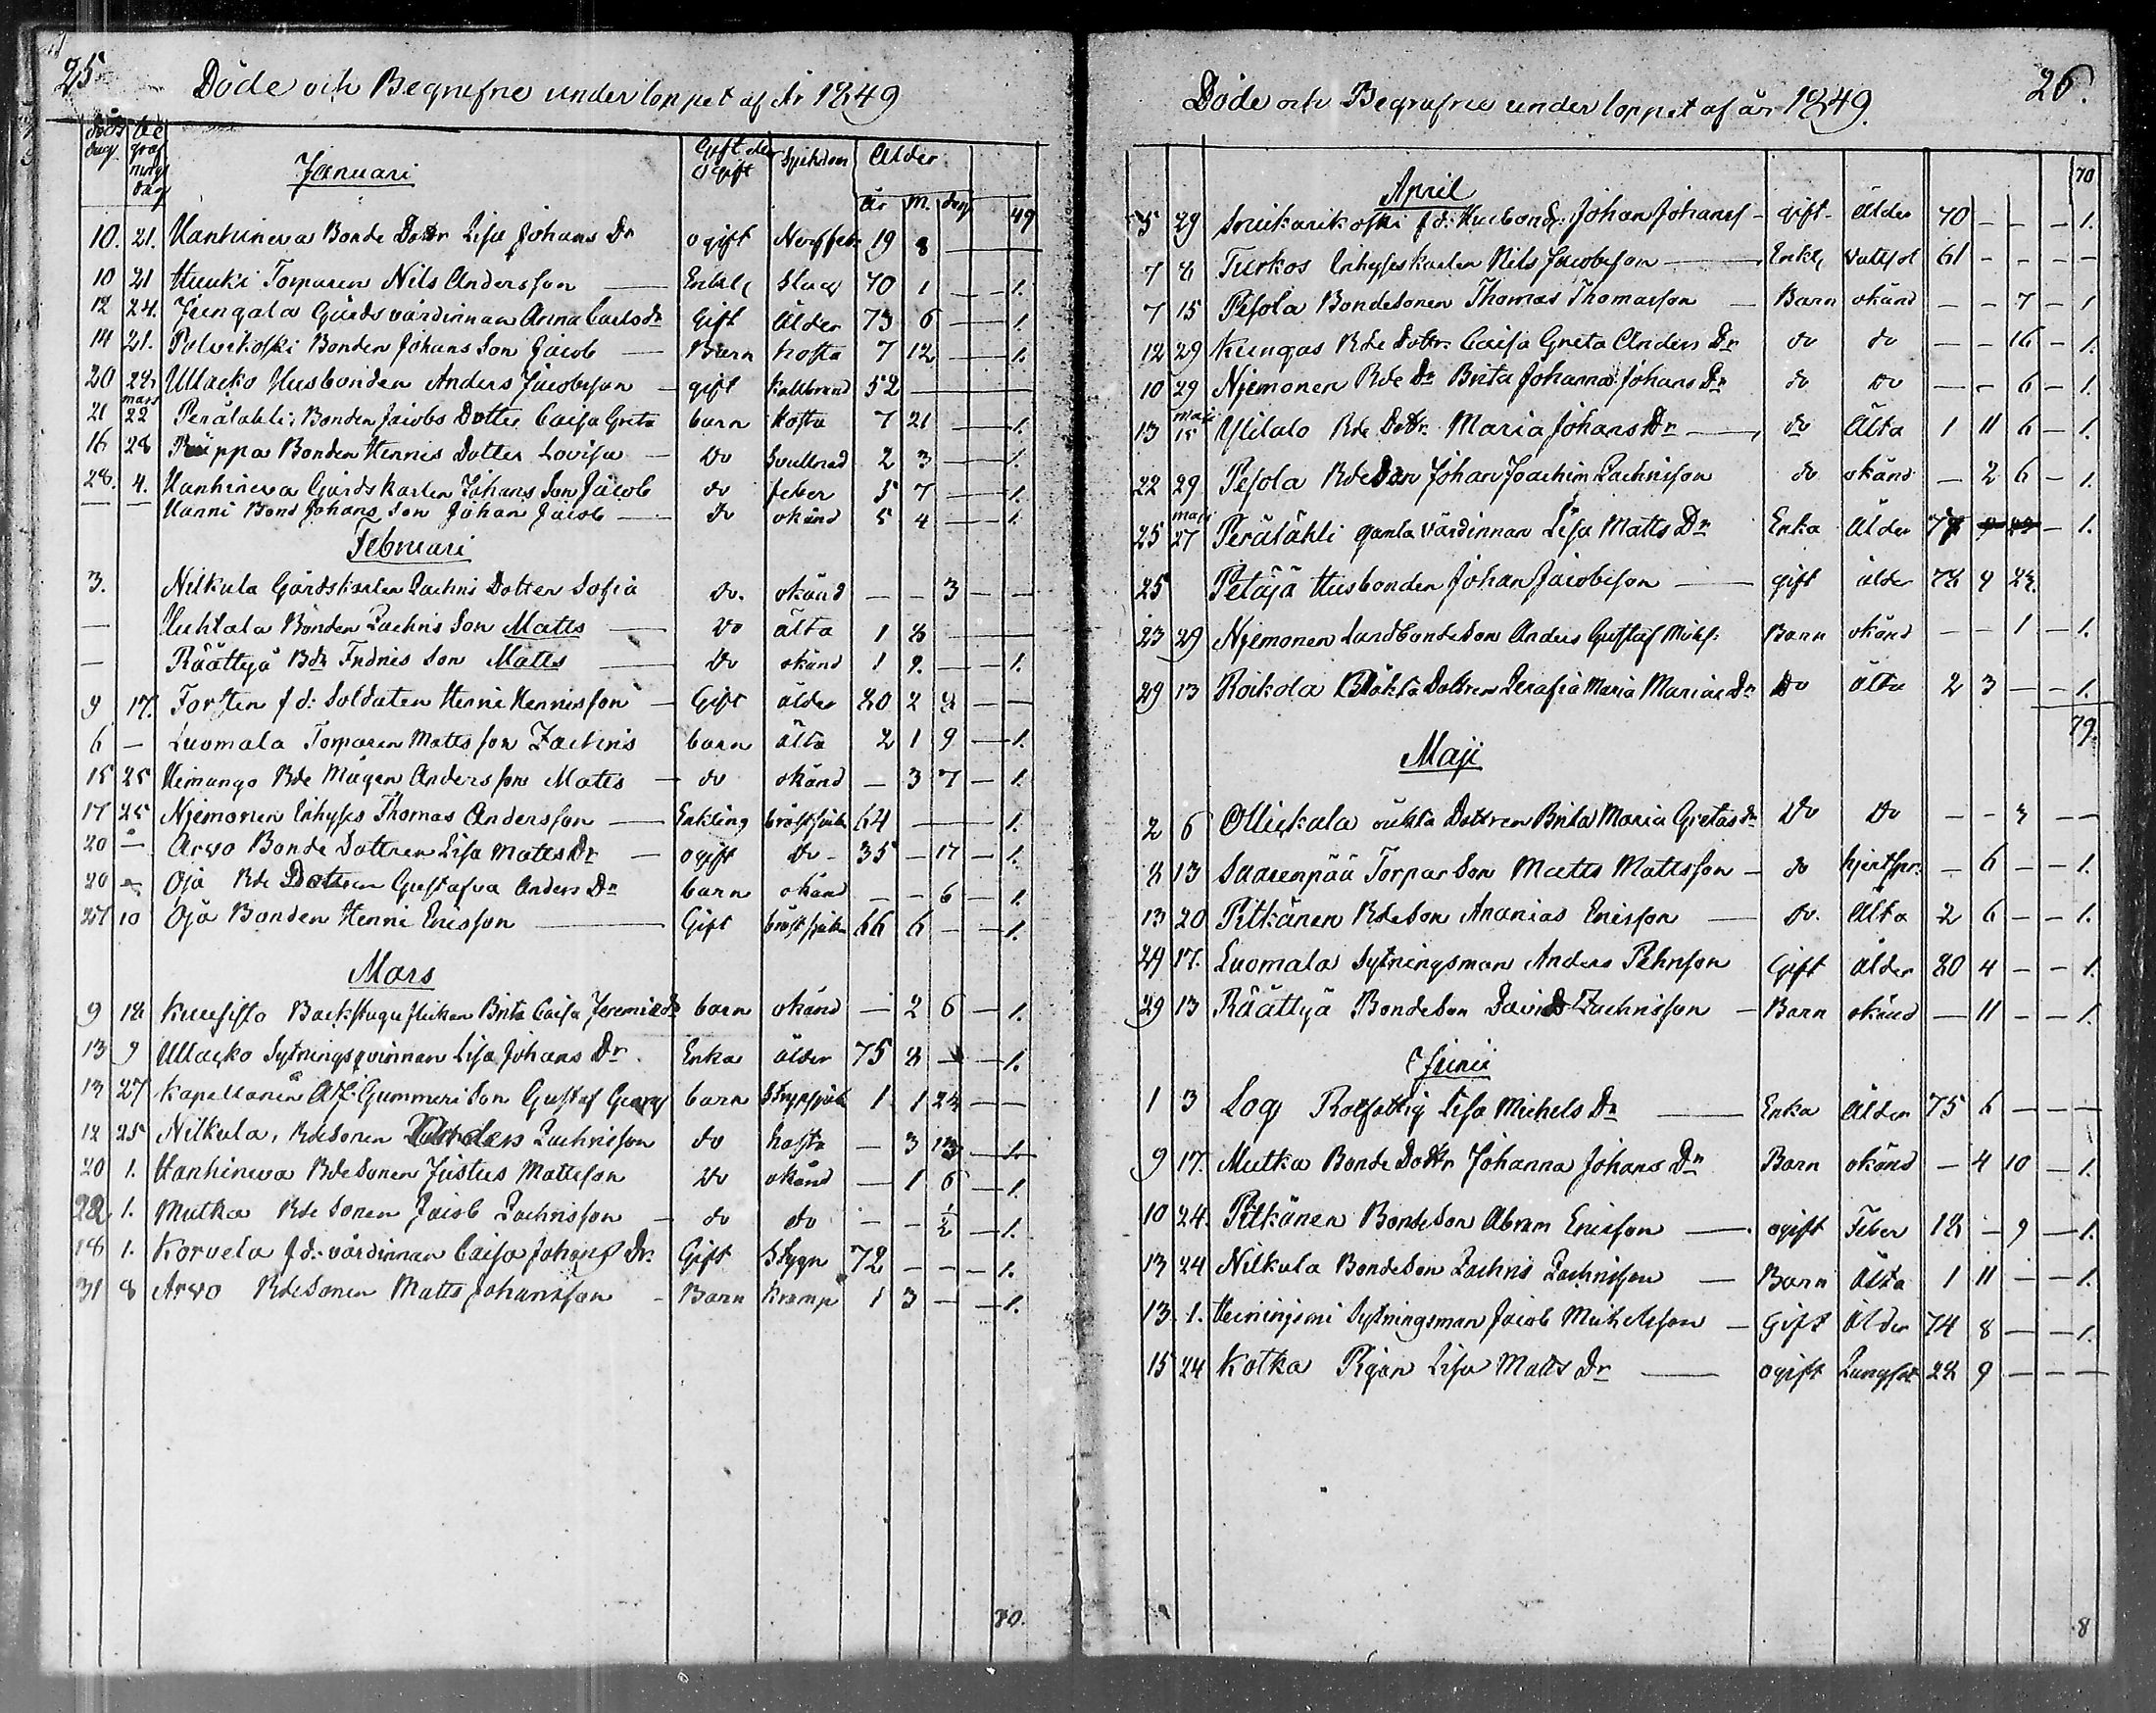 25
Döde och Begrafne under loppet af År 1849
döds dag Be graf nings dag Januari Gift eller ogift Sjukdom Ålder
År M. dag 49
10. 21. Kanhineva Bonde Dottr Lisa Johans Dr ogift Nerffeb. 19 8 — —
10 21 Huuki Torparen Nils Andersson — Enkl. Slag 70 1 — — 1.
12 24. Jungala Gårdsvärdinnan Anna Carls dr Gift Ålder 73 6 — — 1.
14 21. Polvikoski Bonden Johans Son Jacob — Barn hosta 7 12 — — 1.
20 28 Ullacko Husbonden Anders Jacobsson — gift kallbrand 52 — — —
21 mars 22 Perälahti Bonden Jacobs Dotter Caisa Greta barn hosta 7 21 — — 1.
16 28 Bonden Hennis Dotter Lovisa — do 2 3 — — 1.
28. 4. Kanhineva Gårdskarlen Johans Son Jacob do feber 5 7 — — 1.
— — Kanni Bond Johans Son Johan Jacob — do okänd 5 4 — — 1.
Februari
3. Nilkula Gårdskarlen Zachris Dotter Sofia do. okänd — — 3 — —
— Huhtala Bonden Zachris Son Matts — do älta 1 8 — —
— Räättyä Bde Fredriks Son Matts — do okänd 1 9. — — 1.
9 17. Torsten f d: Soldaten Henric Henricsson — Gift ålder 80 2 8 — —
6 — Luomala Torparen Matts son Zachris barn älta 2 1 9 — 1.
15 25 Himango Bde Mågen Anders son Matts — do okänd — 3 7 — 1.
17 25 Njemonen Inhyses Thomas Andersson — Enkling bröstsjuk 64 — — 1.
20 — Arvo Bonde Dottren Lisa Matts Dr — ogift do 35 — 17 — 1.
20 — Oja Bde Dottren Gustafva Anders Dr barn okänd — — 6 — 1.
27 10 Oja Bonden Henric Ericsson — Gift bröstsjuk 66 6 — — 1.
Mars
9 18 Kuusisto Backstugu flickan Brita Caisa Jeremie dr barn okänd — 2 6 — 1.
13 9 Ullacko Sytningsqvinnan Lisa Johans Dr. Enka ålder 75 8 — — 1.
13 27 Kapellanen Gummeri Son Gustaf Georg barn Strypsjuk 1 1 24 — —
12 25 Nilkula, Bdesonen Anders Zachrisson do hosta — 3 13 — 1.
20 1. Kanhineva Bdesonen Justus Mattsson do okänd — 1 6 — 1.
22 1. Mutka Bde sonen Jacob Zachrisson — do do — — ½ — 1.
18 1. Korvela f d. värdinnan Caisa Johans Dr. Gift Stygn 72 — — — 1.
31 8 Arvo Bdesonen Matts Johansson — Barn Kramp 1 3 — — 1.
26.
Döde och Begrafne under loppet af år 1849.
April 70
5 29 f d: Husbond. Johan Johanss — gift — ålder 70 — — — 1.
7 8 Turkos Inhyseskarlen Nils Jacobsson — Enkl. Vattsot 61 — — — —
7 15 Pesola Bondesonen Thomas Thomasson — Barn okänd — — 7 — 1
12 29 Kungas Bde Dottr. Caisa Greta Anders Dr do do — — 16 — 1.
10 29 Njemonen Bde Dr Brita Johanna Johans Dr do do — — 6 — 1.
13 maji 15 Ylitalo Bde Dottr. Maria Johans Dr — do Älta 1 11 6 — 1.
22 29 Pesola Bde Son Johan Joachim Zachrisson do okänd — 2 6 — 1.
25 maji 27 Perälähti gamla värdinnan Lisa Matts Dr Enka Ålder — 1.
25 Petäjä Husbonden Johan Jacobsson — gift ålder 78 9 23.
23 29 Njemonen Landbondeson Anders Gustaf Barn okänd — — 1 — 1.
29 13 Roikola Oäkta Dottren Serafia Maria Mariae Dr Do älta 2 3 — — 1.
79.
Maji
2 6 Ollickala oäkta Dottren Brita Maria Gretas dr Do Do — — 3 — —
8 13 Saarenpää Torpar Son Matts Mattsson — do — 6 — — 1.
13 20 Pitkänen Bdeson Ananias Ericsson — do. Älta 2 6 — — 1.
29 17. Luomala Sytningsman Anders Pehrson Gift ålder 80 4 — — 1.
29 13 Räättyä Bondeson David Zachrisson — Barn okänd — 11 — — 1.
Junii
1 3 Log Rotfattig Lisa Michels Dr — Enka Ålder 75 6 — — —
9 17. Mutka Bonde Dottr Johanna Johans Dr Barn okänd — 4 10 — 1.
10 24. Pitkänen Bondeson Abram Ericsson — ogift Feber 18 — 9 — 1.
13 24 Nilkula Bondeson Zachris Zachrisson — Barn Älta 1 11 — — 1.
13. 1. Sytningsman Jacob Michelsson — Gift Ålder 74 8 — — 1.
15 24 Kotka Pigan Lisa Matts Dr — ogift Lungsot 28 9 — — —
80.
8